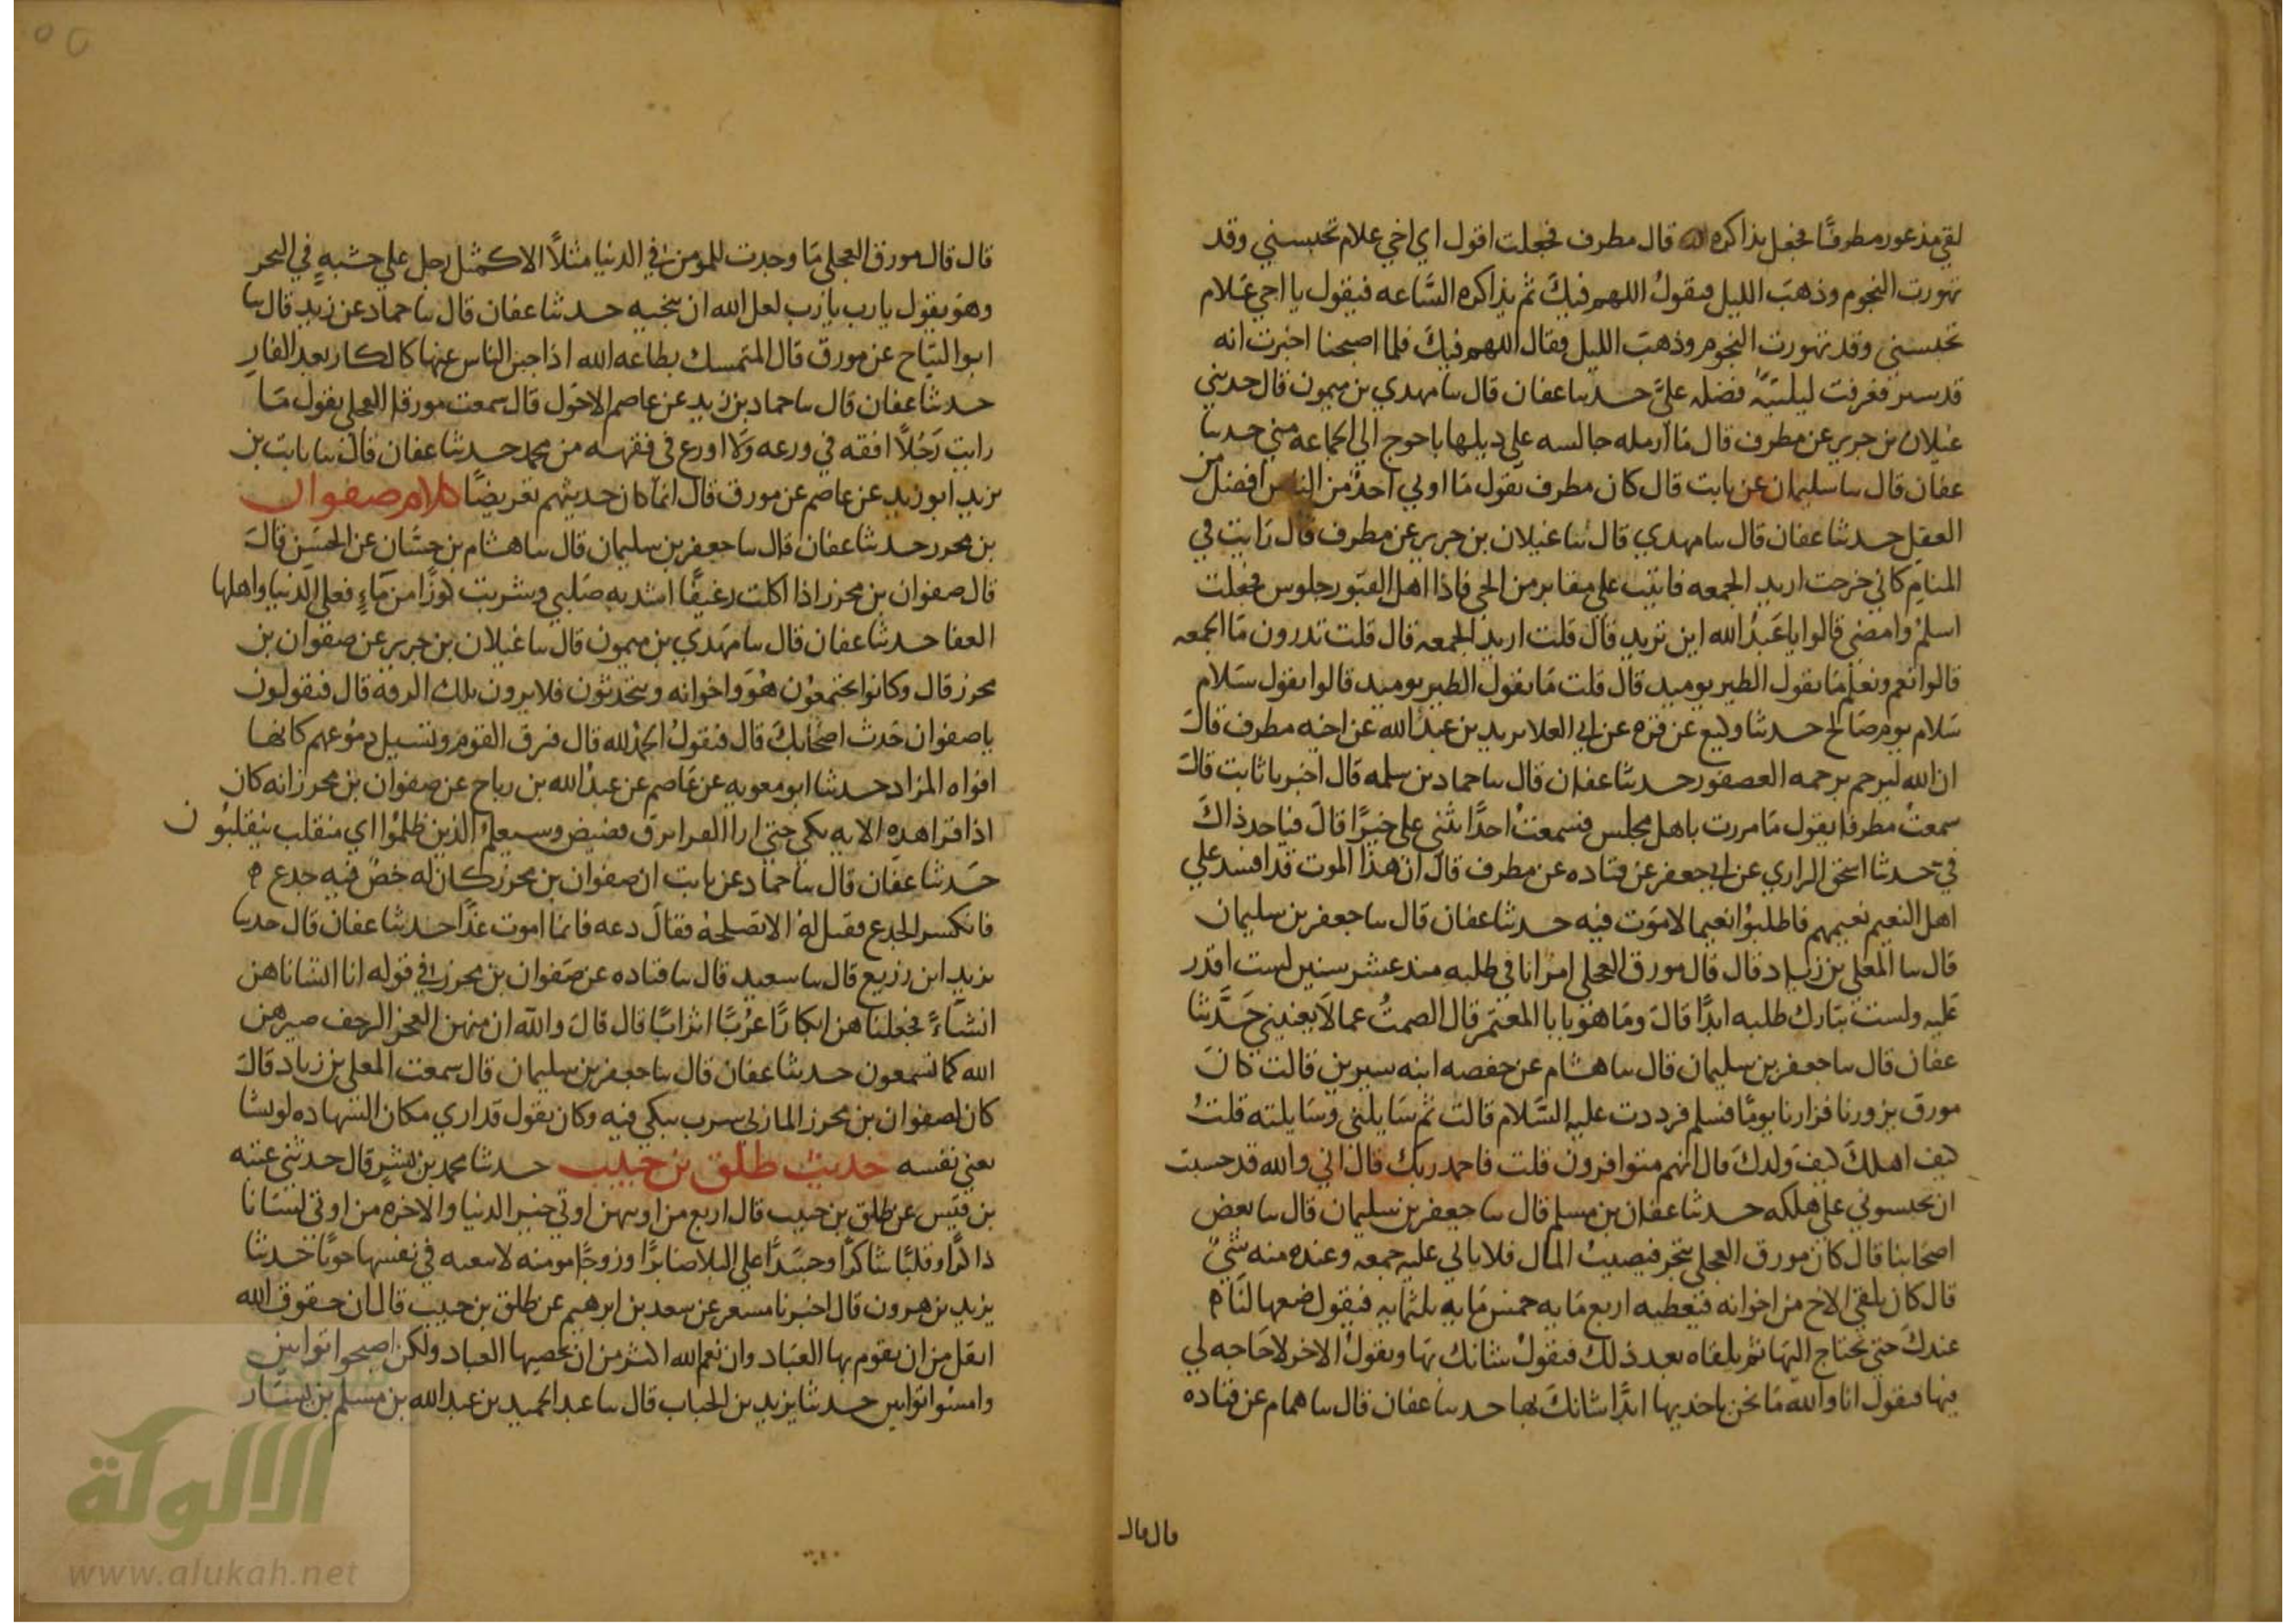 لقي مذعور مطرفًا فجعل يذاكره الله قال مطرف فجعلت اقول اي اخي علام تحبسني وقد
تهورت النجوم وذهبَ الليل فيقولُ اللهم فيكَ ثم يذاكره السَّاعه فيقول يا اخي عَلام
تحبسني وقد تهورت النجوم وذهبَ الليل فقال اللهم فيكَ فلما اصبحنا اخبرت انه
قد سير فعرفت ليلتئذٍ فضله عليَّ حدثنا عفان قال ثنا مهدي بن ميمون قال حدثني
غيلان بن جرير عن مطرف قال مَا ارمله جالسه علي ذيلها باحوج الي الجماعه مني حدثنا
عفان قال ثنا سليمان عن ثابت قال كان مطرف يقول مَا اوتي احدٌ من الناس افضل من
العقل حدثنا عفان قال ثنا مهدي قال ثنا غيلان بن جرير عن مطرف قال رَايت في
المنام كاني خرجت اريد الجمعه فاتيت علي مقابر من الحي فاذا اهل القبور جلوس فجعلت
اسلم وامضي قالوا يا عَبدُ الله اين تريد قال قلت اريد الجمعه قال قلت تدرون مَا الجمعه
قالوا نعم ونعلم مَا يقول الطير يوميذ قال قلت مَا يقول الطير يوميذ قالوا يقول سَلام
سَلام يوم صَالح حدثنا وكيع عن قره عن ابي العلا يزيد بن عبد الله عن اخيه مطرف قالَ
ان الله ليرحم برحمه العصفور حدثنا عفان قال ثنا حماد بن سلمه قال اخبرنا ثابت قالَ
سمعتُ مطرفا يقول مَا مررت باهل مجلس فسمعتُ احدًا يثني علي خيرًا قالَ فياخذ ذاكَ
في حدثنا اسحق الرازي عن ابي جعفر عن قتاده عن مطرف قال ان هذا الموت قد افسد علي
اهل النعيم نعيمهم فاطلبوُا نعيما لا موَت فيه حدثنا عفان قال ثنا جعفر بن سليمان
قال ثنا المعلي بن زياد قال قال مورق العجلي امرٌ انا في طلبه منذ عشر سنين لست اقدر
عَليه ولست بتارك طلبه ابدًا قالَ ومَا هوَ يا با المعتمر قال الصمتُ عما لَا يعنيني حَدَّثنا
عفان قال ثنا جعفر بن سليمان قال ثنا هشام عن حفصه ابنه سيرين قالت كانَ
مورق يزورنا فزارنا يومًا فسلم فرددت عليه السَّلام قالت ثم سَايلني وسَايلته قلتُ
كيف اهلكَ كيفَ ولدكَ قال انهم متوافرون قلت فاحمد ربكَ قال اني والله قد حسبت
ان يحبسوني علي هلكه حدثنا عفان بن مسلم قال ثنا جعفر بن سليمان قال ثنا بعض
اصحَابنا قال كان مورق العجلي يتجر فيصيبُ المال فلا ياتي عليه جمعه وعنده منه شيٌ
قال كان يلقي الاخ من اخوانه فيعطيه اربع مَايه خمس مَايه ثلثمايه فيقول ضعها لنَا
عندكَ حتي نحتاج اليهَا ثم يلقاه بعد ذلكَ فيقولُ شانك بهَا ويقولُ الاخر لا حَاجه لي
فيها فيقول انا والله مَا نحن باخذيها ابدًا شانكَ بها حدثنا عفان قال ثنا همام عن قتاده
قال قال
قال قال مورق العجلي مَا وجدت للمومن في الدنيا مثلًا الا كمثل رجل علي خشبهٍ في البحر
وهوَ يقول يا رب يا رب لعل الله ان ينجيه حدثنا عفان قال ثنا حماد عن زيد قال ثنا
ابو التياح عن مورق قال المتمسك بطاعه الله اذا جبن الناس عنها كالكار بعد الفار
حدثنا عفان قال ثنا حماد بن زيد عن عاصم الاحَول قال سمعت مورقا العجلي يقول مَا
رايت رَجُلًا افقه في ورعه وَلَا اورع في فقهه من محمد حدثنا عفان قال ثنا ثابت بن
يزيد ابو زيد عن عاصم عن مورق قال انمَا كان حديثهم تعريضًا كلام صفوان
بن محرز حدثنا عفان قال ثنا جعفر بن سليمان قال ثنا هشام بن حسَّان عن الحسَن قالَ
قال صفوان بن محرز اذا اكلت رغيفًا اشد به صَلبي وشربت كوزًا من مَاءٍ فعلي الدنيا واهلها
العفا حدثنا عفان قال ثنا مهَدي بن ميمون قال ثنا غيلان بن جرير عن صفوان بن
محرز قال وكانوا يجتمعوُن هُوَ واخوانه ويتحدثون فلا يرون تلك الرقه قال فيقولون
يا صفوان حَدث اصحَابكَ قال فيقولُ الحمدُ لله قال فيرق القوم وتسيل دموُعهم كانها
افواه المزاد حدثنا ابو معويه عن عَاصم عن عبدُ الله بن رباح عن صفوان بن محرز انه كان
اذا قرا هذه الايه بكي حتي اري القد انزق قضيض وسيعلمُ الذين ظلموُا اي منقلب ينقلبوُن
حَدثنا عفان قال ثنا حماد عن ثابت ان صفوان بن محرز كان له خصٌ فيه جذع
فانكسر الجذع فقيل لهُ الا تصَلحهُ فقالَ دعه فانما اموت غدًا حدثنا عفان قال حدثنا
يزيد ابن زريع قال ثنا سعيد قال ثنا قتاده عن صَفوان بن محرز في قوله انا انشاناهن
انشَاءً فجعلناهن ابكارًا عرُبًا اترابًا قال قالَ والله ان منهن العجز الرجف صيرهن
الله كما تسمعون حدثنا عفان قال ثنا جعفر بن سليمان قال سمعت المعلي بن زياد قالَ
كان لصفوان بن محرز المازني سرب يبكي فيه وكان يقول قد اري مكان الشهاده لو يشا
يعني نفسه حديث طلق بن حبيب حدثنا محمد بن بشرٍ قال حدثني عتبه
بن قيَس عن طلق بن حبيب قال اربع من اوتيهن اوتي خير الدنيا والاخره من اوتي لسَانا
ذاكرًا وقلبًا شاكرًا وجسَدًا علي البلا صابرًا وزوجًا مومنه لا تبغيه في نفسها حوبًا حدثنا
يزيد بن هرون قال اخبرنا مسعر عن سعد بن ابرهيم عن طلق بن حبيب قال ان حقوق الله
اثقل من ان يقوم بها العبَاد وان نعم الله اكثر من ان تحصيها العباد ولكن اصبحوا توابين
وامسوا توابين حدثنا يزيد بن الحباب قال ثنا عبد الحميد بن عبد الله بن مسلم بن يسَار
الألوكة
www.alukah.net